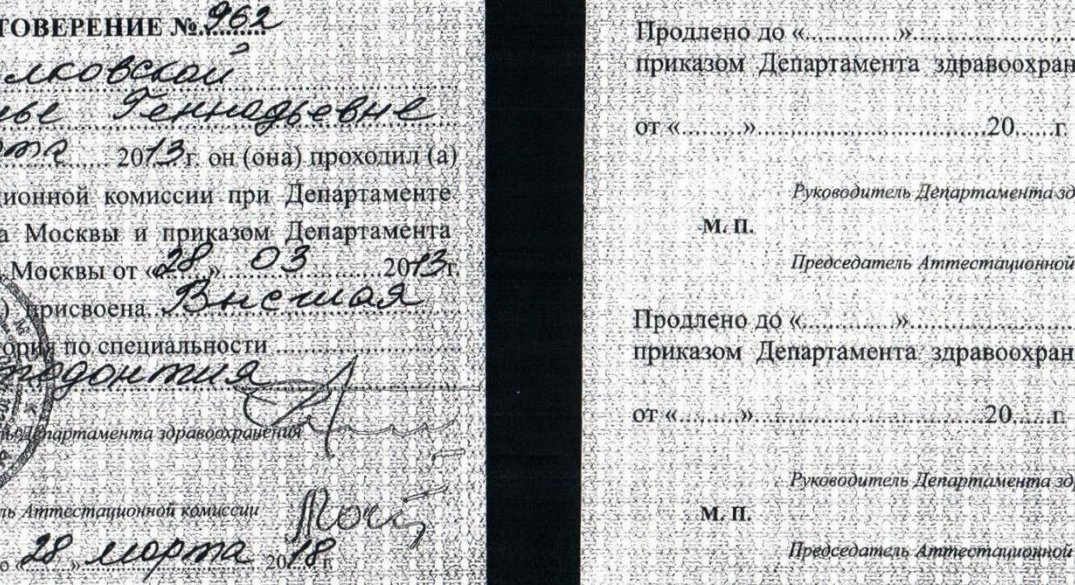 ТОВЕРЕНИЕ № 962
лковской
Геннадьевне
2013 г. он (она) проходил (а)
ионной комиссии при Департаменте
а Москвы и приказом Департамента
Москвы от «28» 03 2013 г.
) присвоена Высшая
ория по специальности
тодонтия
Департамента здравоохранения
ль Аттестационной комиссии
о «28» марта 2018 г.
Продлено до «............».........................
приказом Департамента здравоохран
от «.........»....................................20......г.
Руководитель Департамента зд
М. П.
Председатель Аттестационной
Продлено до «............».........................
приказом Департамента здравоохран
от «.........»....................................20......г.
Руководитель Департамента зд
М. П.
Председатель Аттестационной